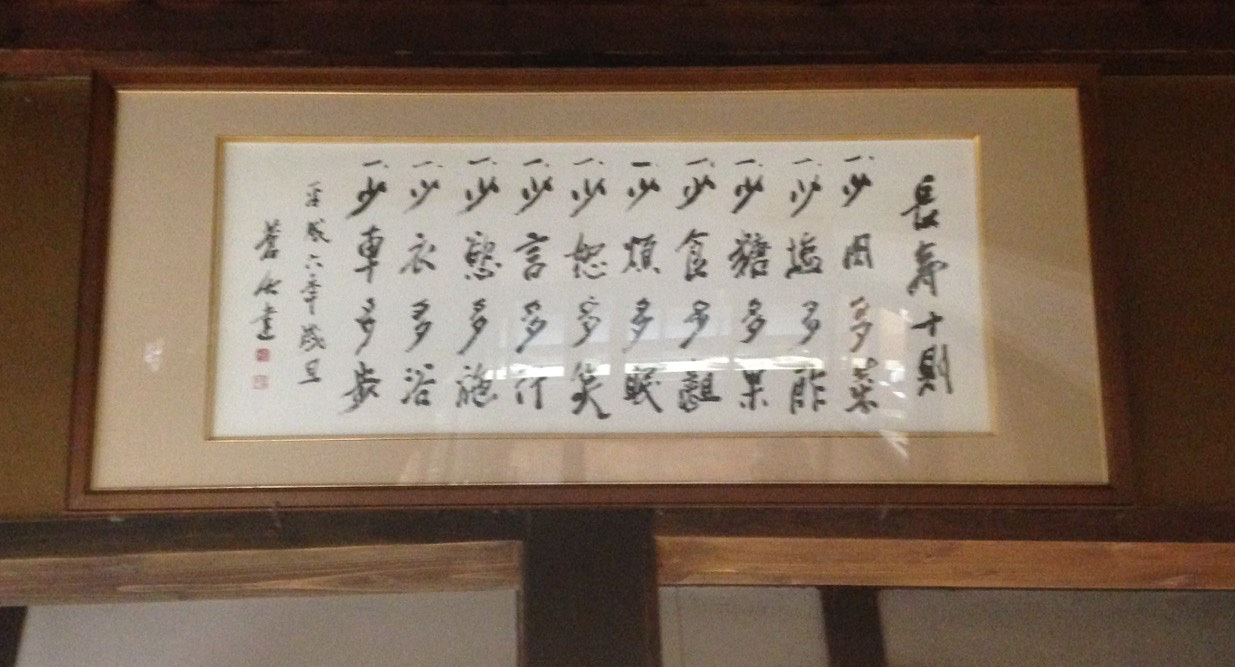 長寿十則
一、少肉多菜
一、少塩多酢
一、少糖多果
一、少食多齟
一、少煩多眠
一、少怒多笑
一、少言多行
一、少慾多施
一、少衣多浴
一、少車多歩
平成六年歳旦
蒼 書